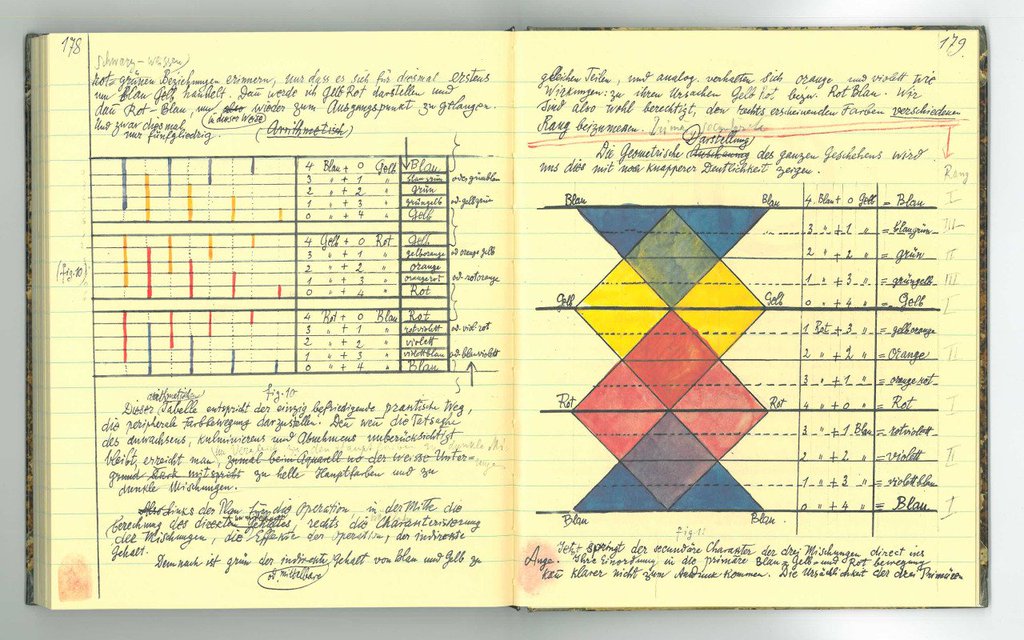 178
schwarz-weissen
rot-grünen Beziehungen erinnern, nur dass es sich für diesmal erstens
um Blau Gelb handelt. Dann werde ich Gelb Rot darstellen und
dan Rot-Blau, um also wieder zum Ausgangspunkt zu gelangen.
in dieser Weise
Und zwar diesmal (Arithmetisch)
nur fünfgliedrig.
4 Blau + 0 Gelb Blau
3 " + 1 " blaugrün od. grünblau
2 " + 2 " grün
1 " + 3 " grüngelb od. gelbgrün
0 " + 4 " Gelb
4 Gelb + 0 Rot Gelb
3 " + 1 " gelborange od. orange gelb
2 " + 2 " orange
(fig. 10)
1 " + 3 " orangerot od. rotorange
0 " + 4 " Rot
4 Rot + 0 Blau Rot
3 " + 1 " rotviolett od. viol. rot
2 " + 2 " violett
1 " + 3 " violettblau od. blauviolett
0 " + 4 " Blau
arithmetischen fig. 10
Dieser Tabelle entspricht der einzig befriedigende practische Weg,
die peripherale Farbbewegung darzustellen. Den wen die Tatsache
des Anwachsens, kulminierens und Abnehmens unberücksichtigt
bleibt, erreicht man, zumal beim Aquarell wo der weisse Unter-
grund stark mitspricht zu helle Hauptfarben und zu
dunkle Mischungen.
Also Links der Plan für die Operation, in der Mitte die
berechnung des directen Gehaltes, rechts die Characterisierung
der Mischungen, die Effekte der Operation, der indirecte
Gehalt.
Demnach ist grün der indirecte Gehalt von blau und Gelb zu
od. mittelbare
179
gleichen Teilen, und analog verhalten sich orange und violett wie
Wirkungen zu ihren Ursachen Gelb Rot bezw. Rot Blau. Wir
sind also wohl berechtigt, den rechts erscheinenden Farben verschiedenen
Rang beizumessen.
Darstellung
Die Geometrische Anschauung des ganzen Geschehens wird
uns dies mit noch knapperer Deutlichkeit zeigen.
Rang
Blau Blau 4 Blau + 0 Gelb = Blau I
3 " + 1 " = blaugrün III
2 " + 2 " = grün II
1 " + 3 " = grüngelb III
Gelb Gelb 0 " + 4 " = Gelb I
1 Rot + 3 " = gelborange
2 " + 2 " = Orange II
3 " + 1 " = orangerot
Rot Rot 4 " + 0 " = Rot I
3 " + 1 Blau = rotviolett
2 " + 2 " = violett II
1 " + 3 " = violettblau
0 " + 4 " = Blau I
Blau Blau
fig. 11
Jetzt springt der secundäre Charakter der drey Mischungen direct ins
Auge. Ihre Einordnung in die primäre Blau = Gelb = und Rot bewegung
kan klarer nicht zum Ausdruck kommen. Die Ursächlichkeit der drei Primären